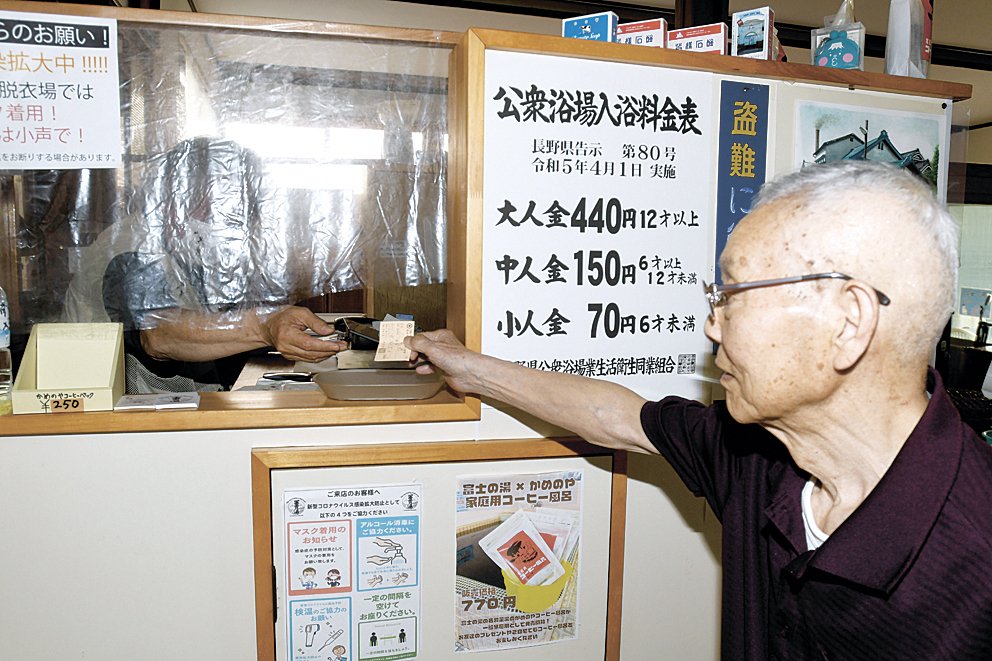 らのお願い！
染拡大中 !!!!!
脱衣場では
着用！
は小声で！
をお断りする場合があります。
公衆浴場入浴料金表
長野県告示 第80号
令和5年4月1日 実施
大人金 440円 12才以上
中人金 150円 6才以上 12才未満
小人金 70円 6才未満
野県公衆浴場業生活衛生同業組合
盗難に
かめのやコーヒーパック
￥250
ご来店のお客様へ
新型コロナウイルス感染拡大防止として
以下の4つをご協力ください
マスク着用の
お知らせ
感染症の予防対策として、
マスクの着用を
お願い致します
アルコール消毒に
ご協力ください。
検温のご協力の
お願い
一定の間隔を
空けて
お座りください。
富士の湯 × かめのや
家庭用コーヒー風呂
販売価格
770円